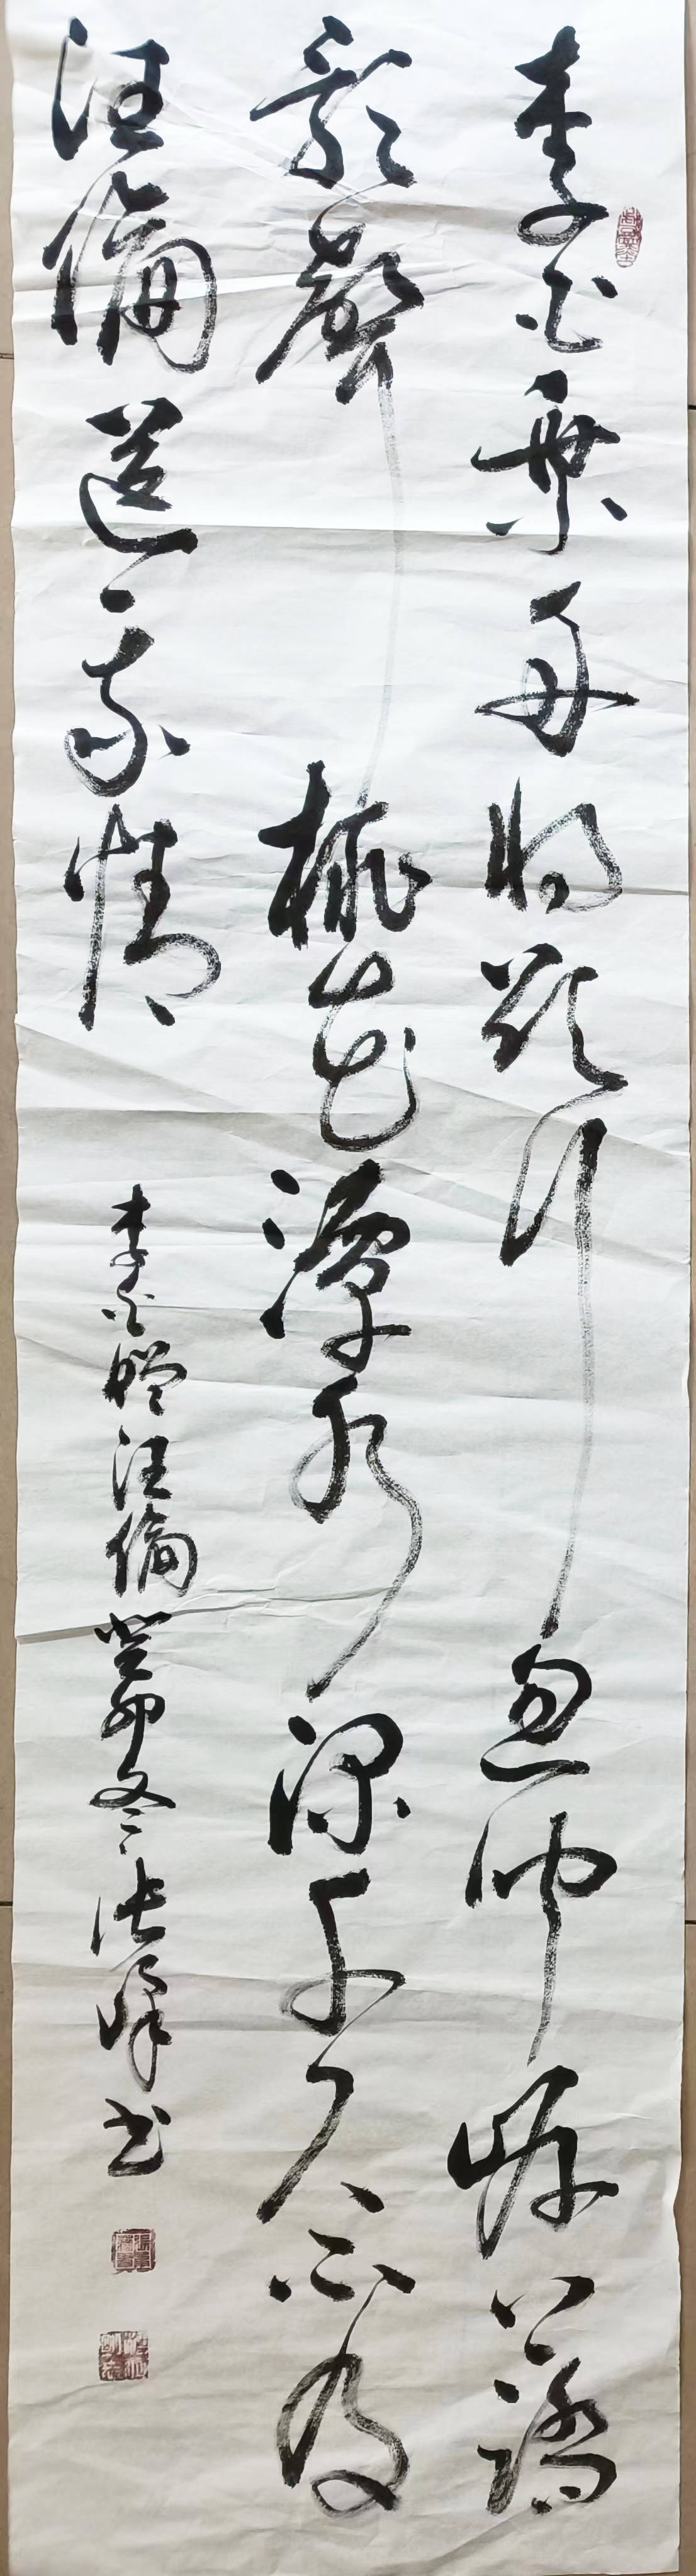 李白乘舟將欲行忽聞岸上踏
歌聲桃花潭水深千尺不及
汪倫送我情
李白贈汪倫癸卯冬張峰书